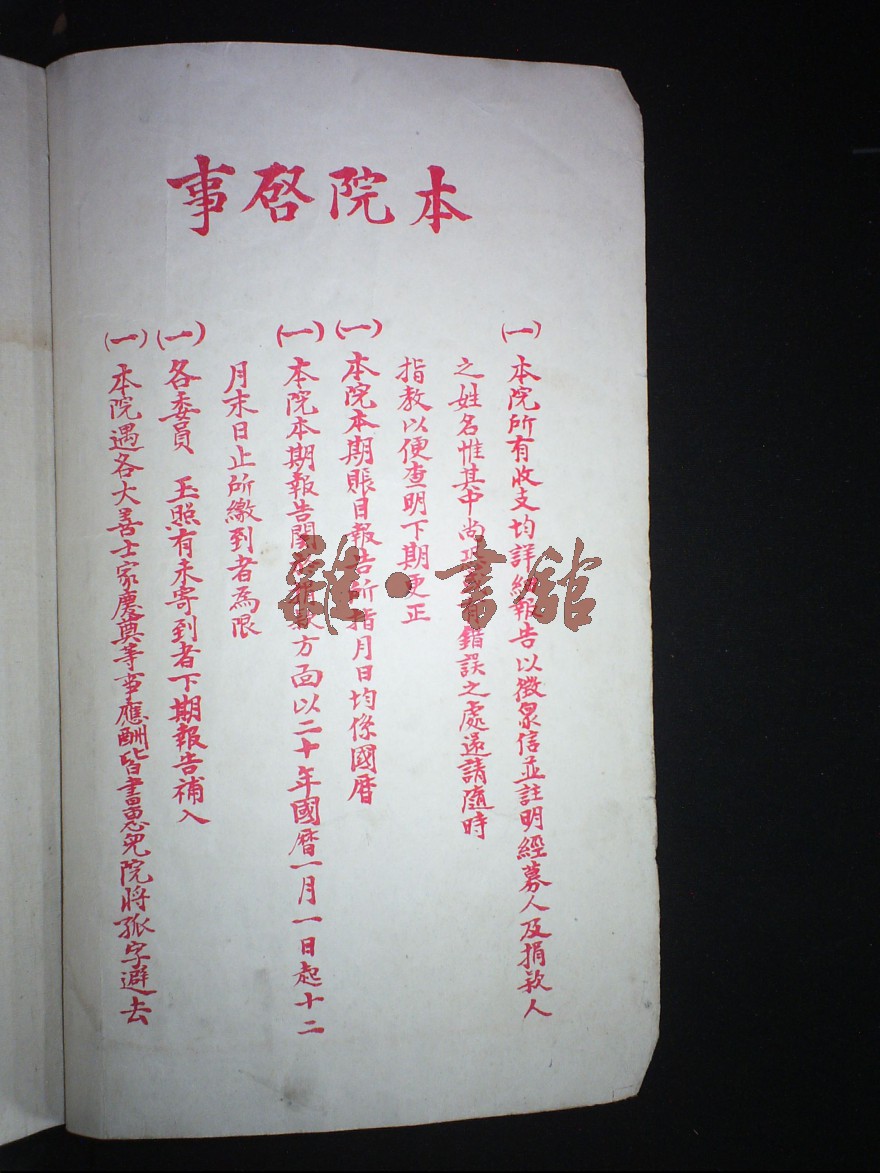 本院啓事
(一)本院所有收支均詳細報告以徵衆信並註明經募人及捐款人
之姓名惟其中尚恐或有錯誤之處還請隨時
指教以便查明下期更正
(一)本院本期賬目報告所指月日均係國曆
(一)本院本期報告關於捐款方面以二十年國曆一月一日起十二
月末日止所繳到者為限
(一)各委員 玉照有未寄到者下期報告補入
(一)本院遇各大善士家慶奠等事應酬皆書惠兒院將孤字避去
雜·書館